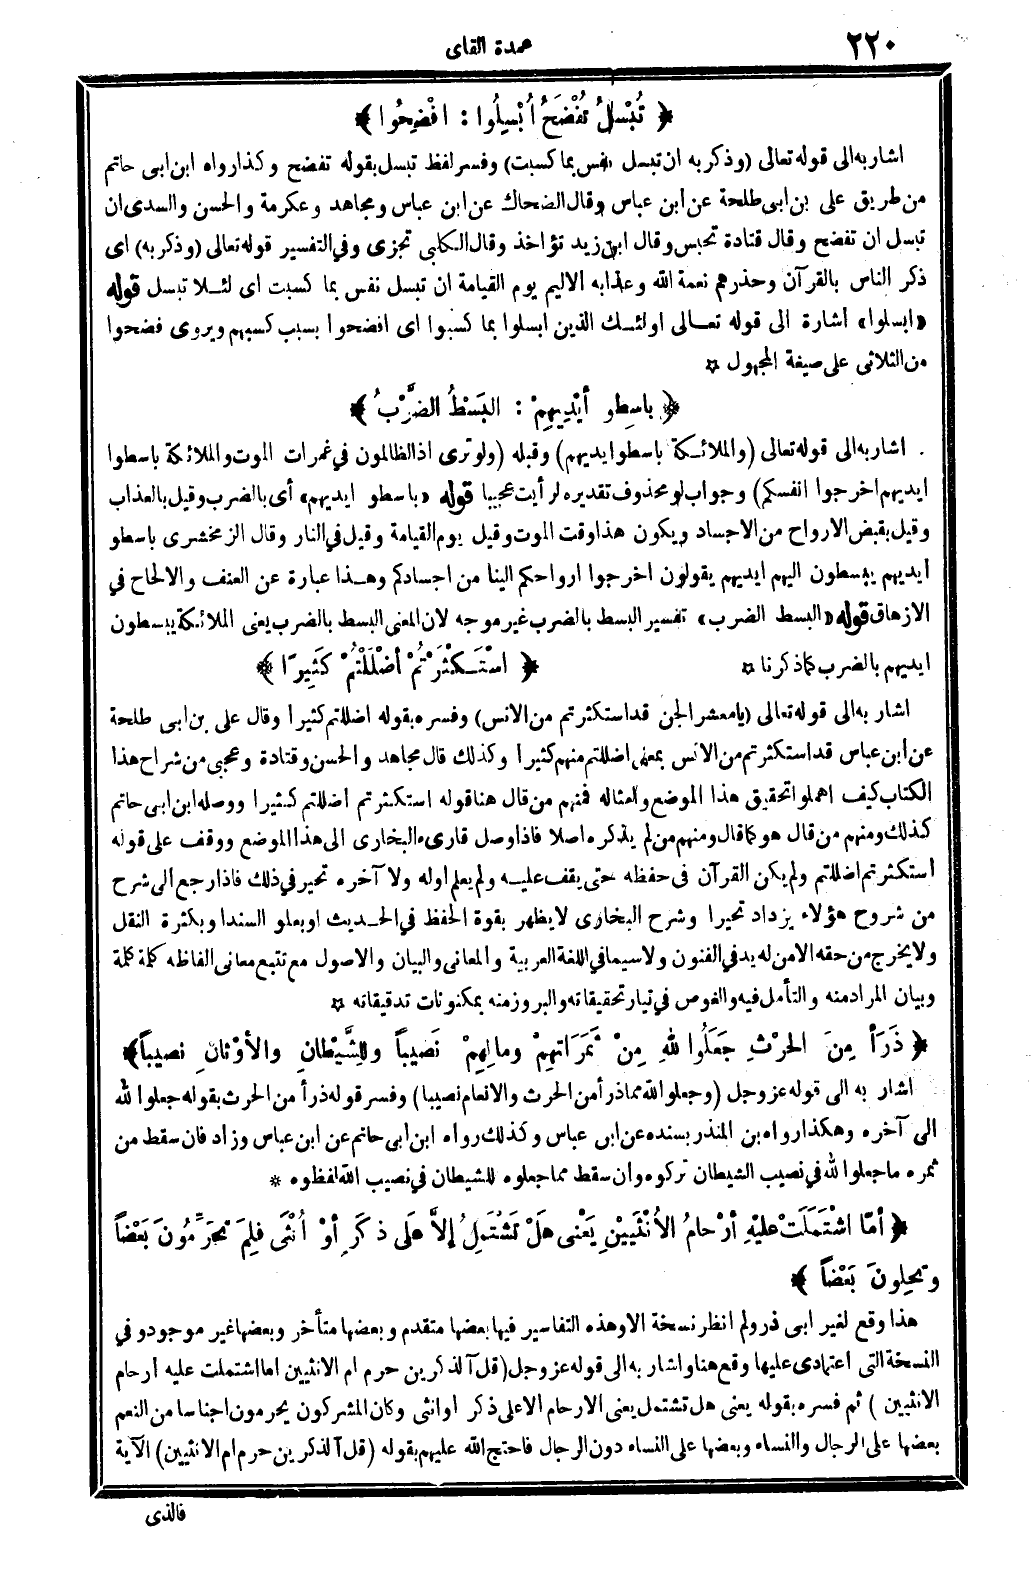 ٢٢٠
عمدة القاى
﴿ تُبْسَلُ تُفْضَحُ أُبْسِلُوا : افْضِحُوا ﴾
اشار به الى قوله تعالى (وذكر به ان تبسل نفس بما كسبت) وفسر لفظ تبسل بقوله تفضح وكذا رواه ابن ابى حاتم
من طريق على بن ابى طلحة عن ابن عباس وقال الضحاك عن ابن عباس ومجاهد وعكرمة والحسن والسدى ان
تبسل ان تفضح وقال قتادة تحبس وقال ابن زيد تؤاخذ وقال الكلبي تجزى وفي التفسير قوله تعالى (وذكر به) اى
ذكر الناس بالقرآن وحذرهم نعمة الله وعذابه الاليم يوم القيامة ان تبسل نفس بما كسبت اى لئلا تبسل قوله
«ابسلوا» اشارة الى قوله تعالى اولئك الذين ابسلوا بما كسبوا اى افضحوا بسبب كسبهم ويروى فضحوا
من الثلاثى على صيغة المجهول ☆
﴿ باسِطو أيْدِيهِمْ : البَسْطُ الضَّرْبُ ﴾
اشار به الى قوله تعالى (والملائكة باسطوا ايديهم) وقبله (ولو ترى اذ الظالمون في غمرات الموت والملائكة باسطوا
ايديهم اخرجوا انفسكم) وجواب لو محذوف تقديره لرأيت عجيبا قوله «باسطو ايديهم» أى بالضرب وقيل بالعذاب
وقيل بقبض الارواح من الاجساد ويكون هذا وقت الموت وقيل يوم القيامة وقيل في النار وقال الزمخشرى باسطو
أيديهم يبسطون اليهم ايديهم يقولون اخرجوا ارواحكم الينا من اجسادكم وهذا عبارة عن العنف والالحاح في
الازهاق قوله «البسط الضرب» تفسير البسط بالضرب غير موجه لان المعنى البسط بالضرب يعنى الملائكة يبسطون
ايديهم بالضرب كما ذكرنا ☆ ﴿ اسْتَكْثَرْتُمْ أضْلَلْتُمْ كَثِيرًا ﴾
اشار به الى قوله تعالى (يا معشر الجن قد استكثرتم من الانس) وفسره بقوله اضللتم كثيرا وقال على بن ابى طلحة
عن ابن عباس قد استكثرتم من الانس بمعنى اضللتم منهم كثيرا وكذلك قال مجاهد والحسن وقتادة وعجبي من شراح هذا
الكتاب كيف اهملوا تحقيق هذا الموضع وامثاله فمنهم من قال هنا قوله استكثرتم اضللتم كثيرا ووصله ابن ابى حاتم
كذلك ومنهم من قال هو كما قال ومنهم من لم يذكره اصلا فاذا وصل قارىء البخارى الى هذا الموضع ووقف على قوله
استكثرتم اضللتم ولم يكن القرآن فى حفظه حتى يقف عليه ولم يعلم اوله ولا آخره تحير في ذلك فاذا رجع الى شرح
من شروح هؤلاء يزداد تحيرا وشرح البخارى لا يظهر بقوة الحفظ في الحديث او بعلو السند او بكثرة النقل
ولا يخرج من حقه الا من له يد في الفنون ولا سيما في اللغة العربية والمعانى والبيان والاصول مع تتبع معانى الفاظه كلمة كلمة
وبيان المراد منه والتأمل فيه والغوص في تيار تحقيقاته والبروز منه بمكنونات تدقيقاته ☆
﴿ ذَرَأ مِنَ الحَرْثِ جَعَلُوا للهِ مِنْ ثَمَرَاتِهِمْ ومالِهِمْ نَصِيباً وللِشَّيْطانِ والأوْثانِ نَصِيباً ﴾
اشار به الى قوله عز وجل (وجعلوا لله مما ذرأ من الحرث والانعام نصيبا) وفسر قوله ذرأ من الحرث بقوله جعلوا لله
الى آخره وهكذا رواه بن المنذر بسنده عن ابن عباس وكذلك رواه ابن ابى حاتم عن ابن عباس وزاد فان سقط من
ثمره ما جعلوا لله في نصيب الشيطان تركوه وان سقط مما جعلوه للشيطان في نصيب الله لفظوه *
﴿ أمَّا اشْتَمَلَتْ عليْهِ أرْحامُ الأُنْثَيَيْنِ يَعْنى هَلْ تَشْتَمِلُ إلاَّ على ذكَرٍ أوْ أُنْثَى فلِمَ تحَرِّمُونَ بَعْضاً
وتحِلونَ بَعْضاً ﴾
هذا وقع لغير ابى ذر ولم انظر نسخة الا وهذه التفاسير فيها بعضها متقدم وبعضها متأخر وبعضها غير موجود وفي
النسخة التى اعتمادى عليها وقع هنا واشار به الى قوله عز وجل (قل آلذكرين حرم ام الانثيين اما اشتملت عليه أرحام
الانثيين ) ثم فسره بقوله يعنى هل تشتمل يعنى الارحام الا على ذكر او انثى وكان المشركون يحرمون اجناسا من النعم
بعضها على الرجال والنساء وبعضها على النساء دون الرجال فاحتج الله عليهم بقوله (قل آلذكرين حرم ام الانثيين) الآية
فالذى